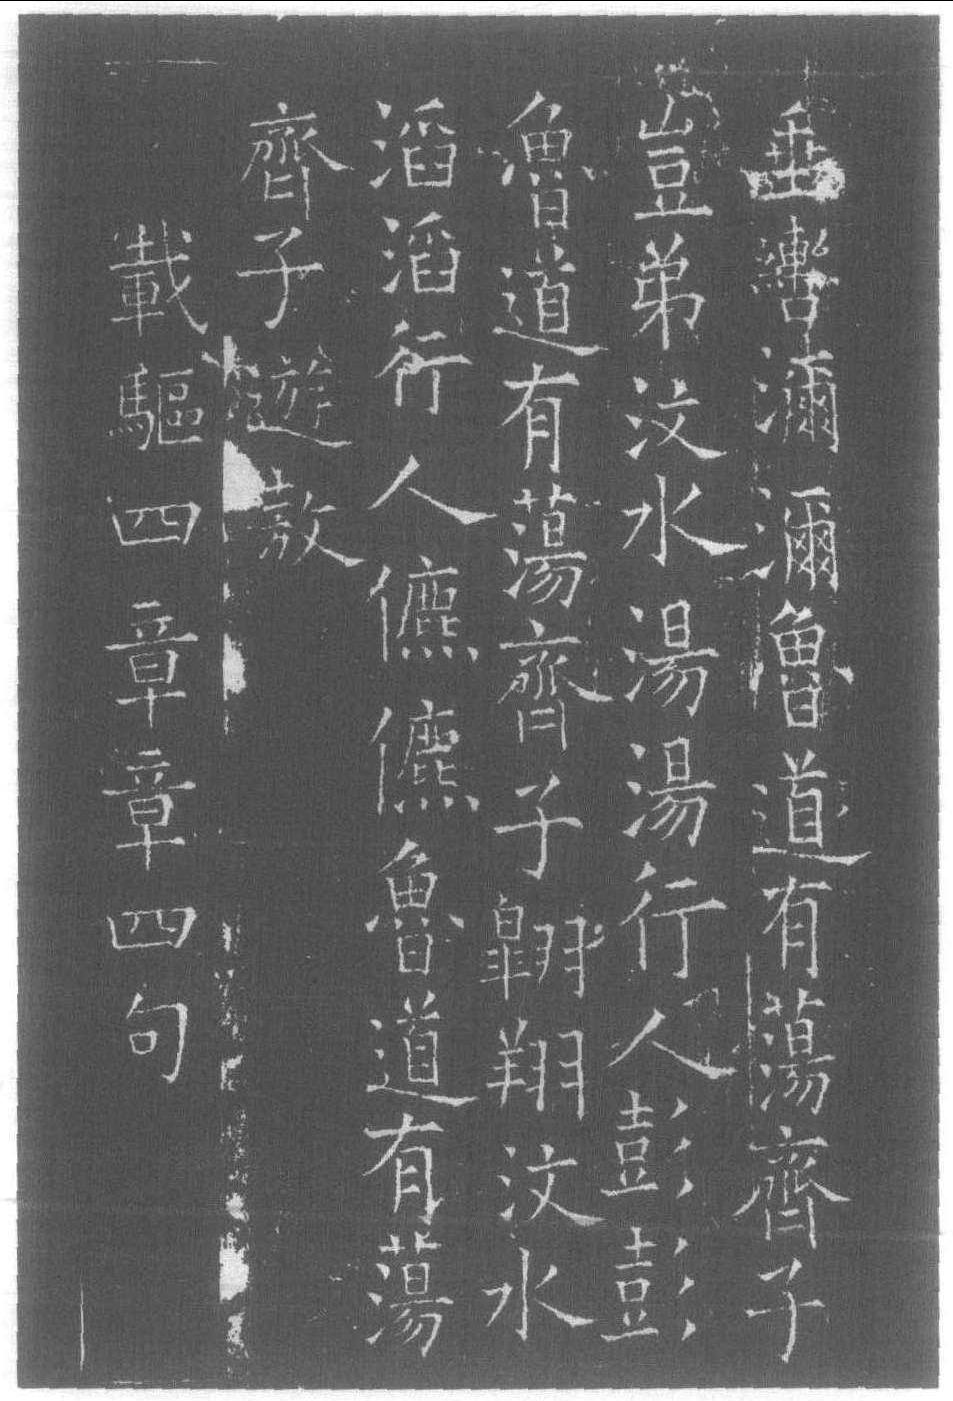 垂轡濔濔魯道有蕩齊子
豈弟汶水湯湯行人彭彭
魯道有蕩齊子翱翔汶水
滔滔行人儦儦魯道有蕩
齊子遊敖
載驅四章章四句